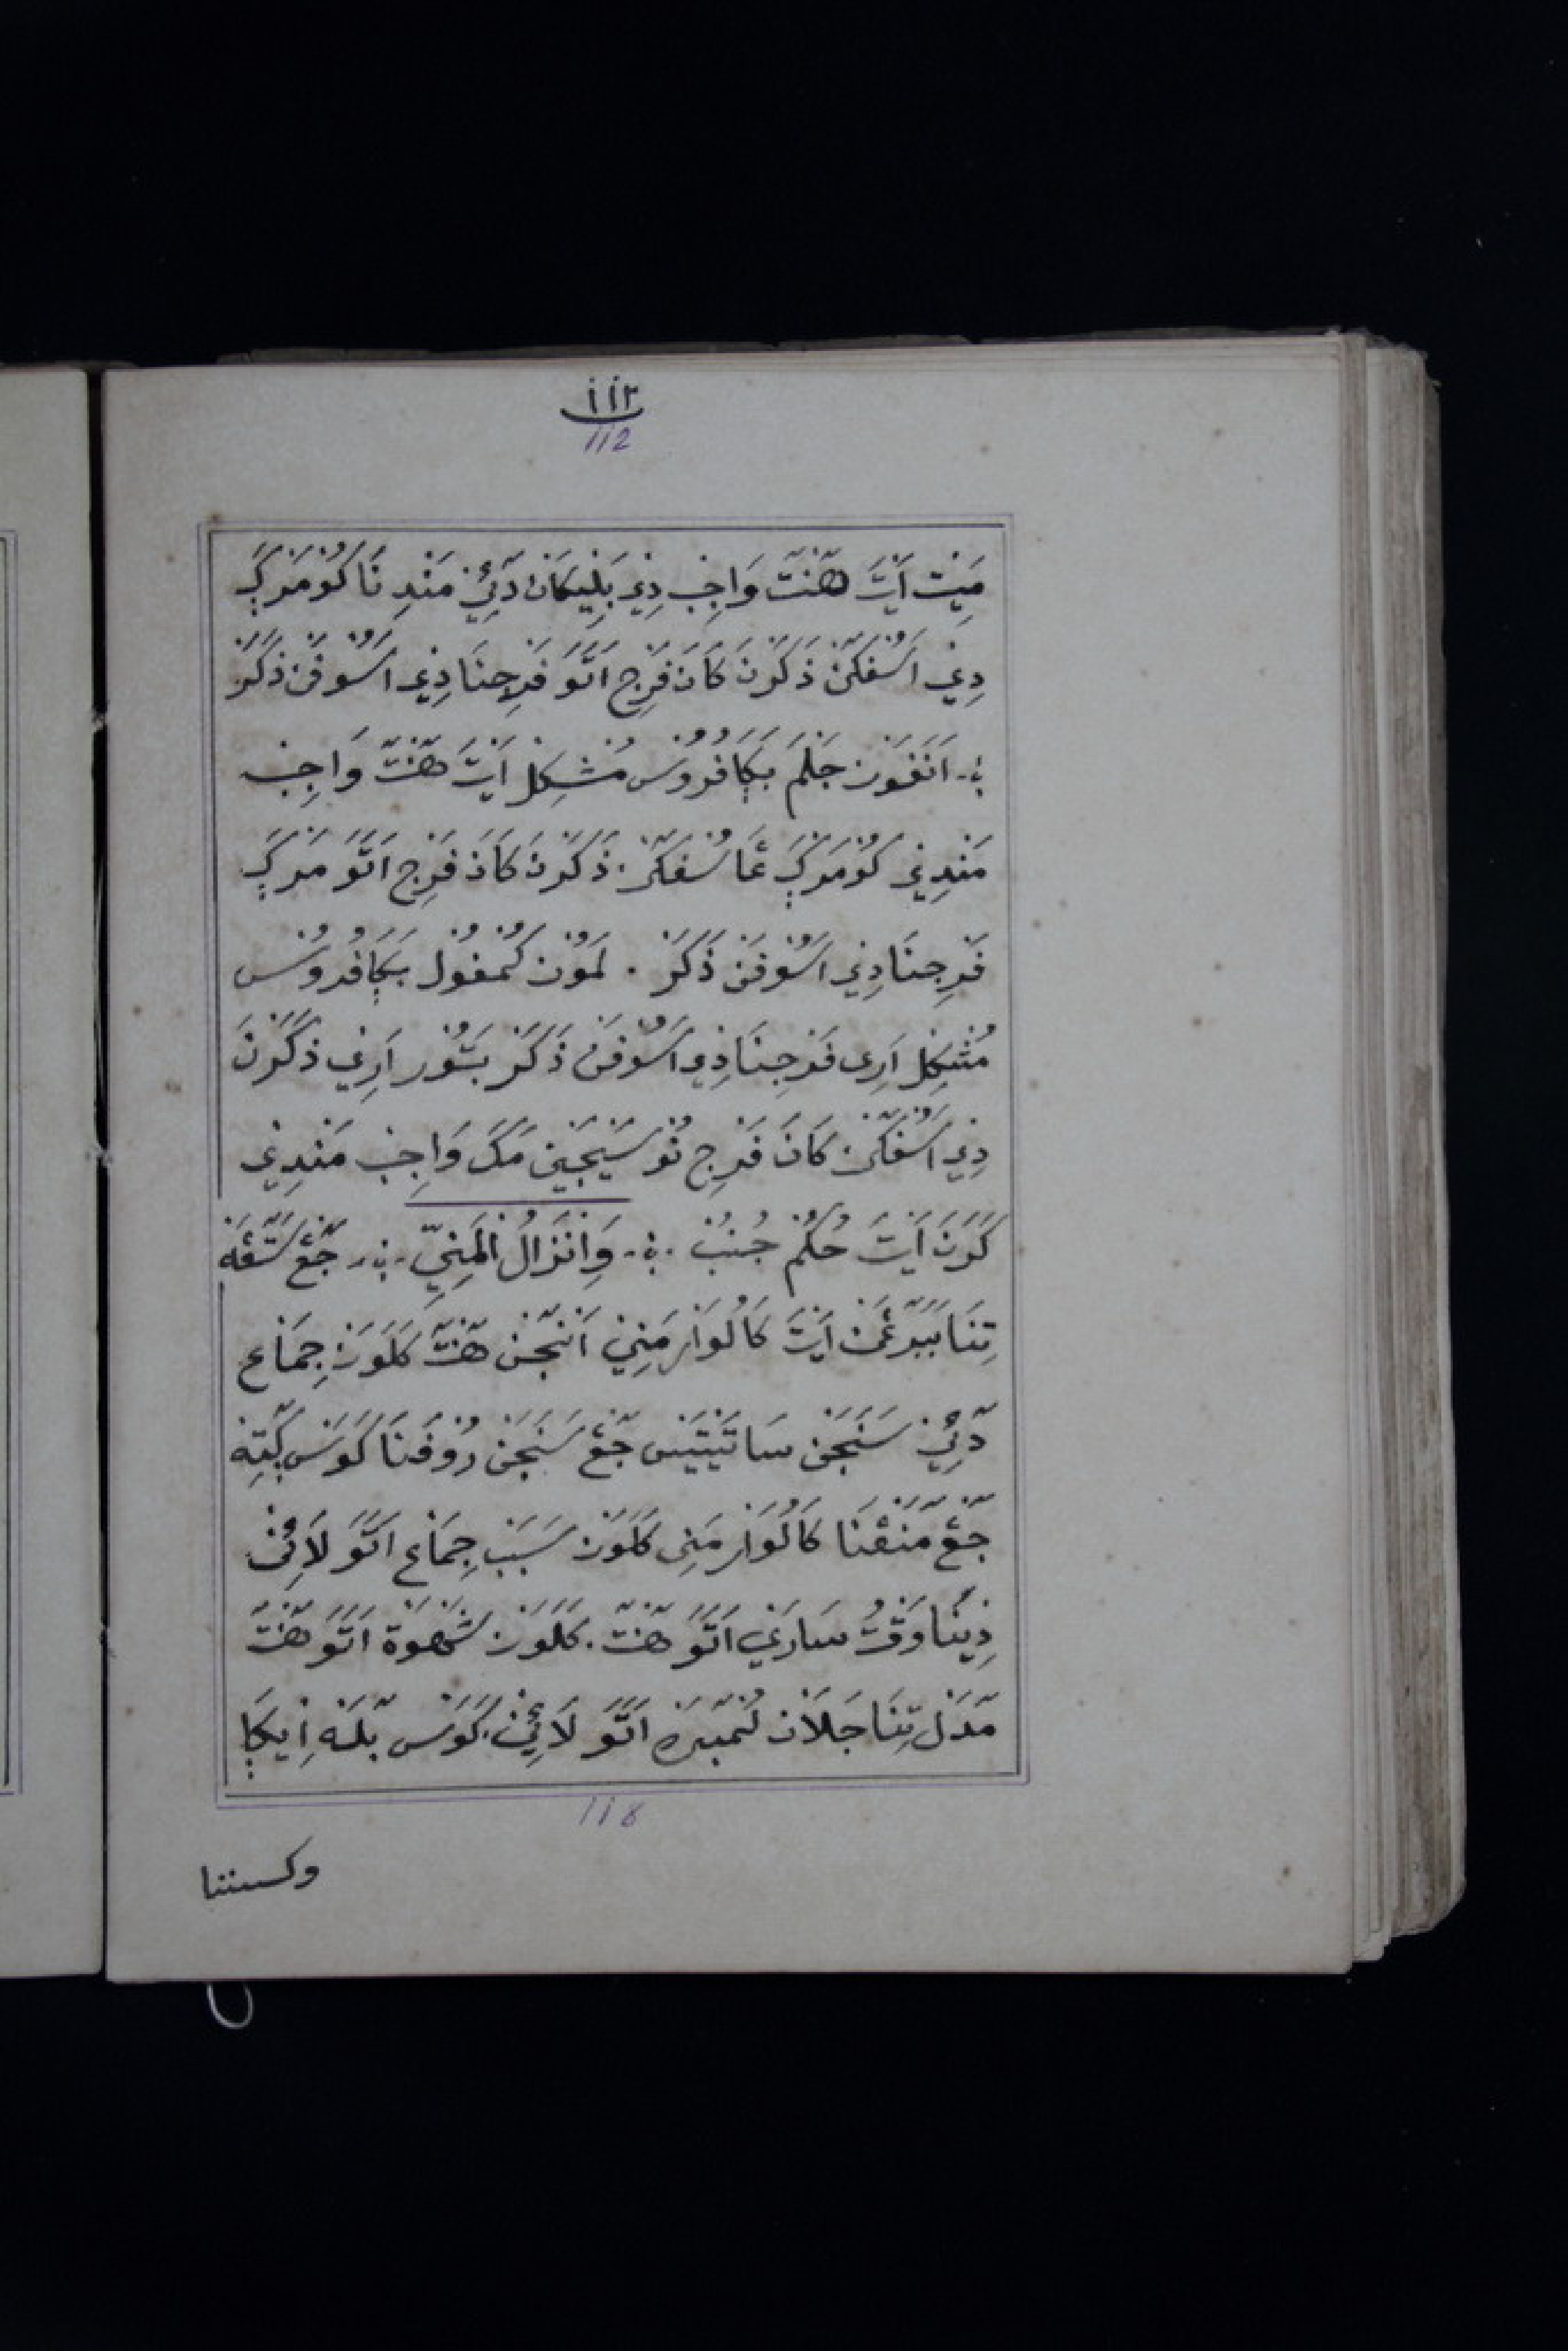 ١١٢
112
مَيِّت اَيْتَ هَنْتَ وَاجِبْ دِيْ بَلِيْكَانْ دَئِيْ مَنْدِ نَا كُوْمَرَكِ
دِيْ اَسُفْكَنْ ذَكَرْنَ كَانَ فَرِج اَتَوَ فَرِجْنَا دِيْ اَسُوْفَنْ ذَكَرْ
اَنَفُوْنْ جَلَمَ بَكَافُرُوْسْ مُشْكِلْ اَيْتَ هَنْتَ وَاجِبْ
مَنْدِيْ كُوْمَرَكِ عَاسُفْكَنْ. ذَكَرْنَ كَانَ فَرِج اَتَوَ مَرَكِ
فَرِجْنَا دِيْ اَسُوْفَنْ ذَكَرْ . لَمُوْنْ كُمْفُوْل بَكَافُرُوْسْ
مُشْكِلْ اَرِى فَرْجِنَا دِيْ اَسُوْفَنْ ذَكَرْ بَتُوْر اَرِيْ ذَكَرْنَ
دِيْ اَسُفْكَنْ كَانَ فَرِج نُوْ سَيْجَيْنْ مَكَ وَاجِبْ مَنْدِيْ
كَرَنَ اَيْتَ حُكُمْ جُنُبْ . وَاِنْزَالُ الْمَنِيِّ
تِنَا اَيْتَ كَالُوَارْ مَنِيْ اَنْجَنْ هَنْتَ كَلَوَنْ جِمَاع
دَئِيْ سَنَجَنْ سَاتَيْتَيْس جَڠ سَنَجَنْ رُوْفَنَا كَوَسْ كَتِهْ
جَڠ كَالُوَارْ مَنِى كَلَوَنْ سَبَبْ جِمَاع اَتَوَ لَائِنْ
دِيْنَا وَقْتُ سَارَيْ اَتَوَ هَنْتَ. كَلَوَنْ شَهْوَةْ اَتَوَ هَنْتَ
مَدَلْ تِنَا جَلَانْ لُمْبَرَهْ اَتَوَ لَائِيْنْ. كَوَسْ بَلَهْ اِيْكَا
118
وكستنا